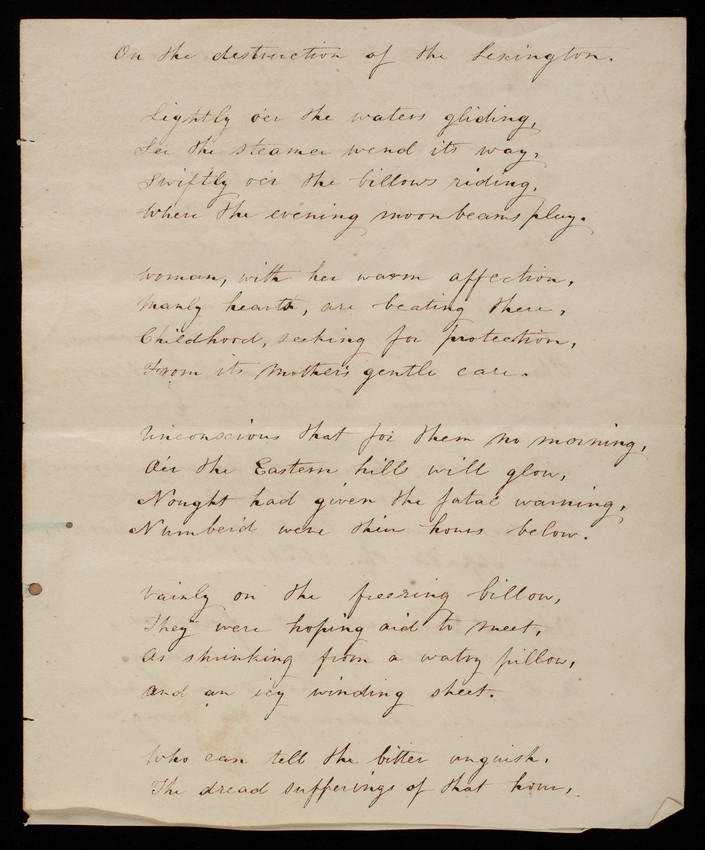 On the destruction of the Lexington.
Lightly o'er the waters gliding,
See the steamer wend its way,
Swiftly o'er the billows riding,
Where the evening moonbeams play.
Woman, with her warm affection,
Manly hearts, are beating there,
Childhood, seeking for protection,
From its Mother's gentle care.
Unconscious that for them no morning,
O'er the Eastern hills will glow,
Nought had given the fatal warning,
Number'd were their hours below.
Vainly on the freezing billow,
They were hoping aid to meet,
As shrinking from a watry pillow,
And an icy winding sheet.
Who can tell the bitter anguish,
The dread sufferings of that hour,